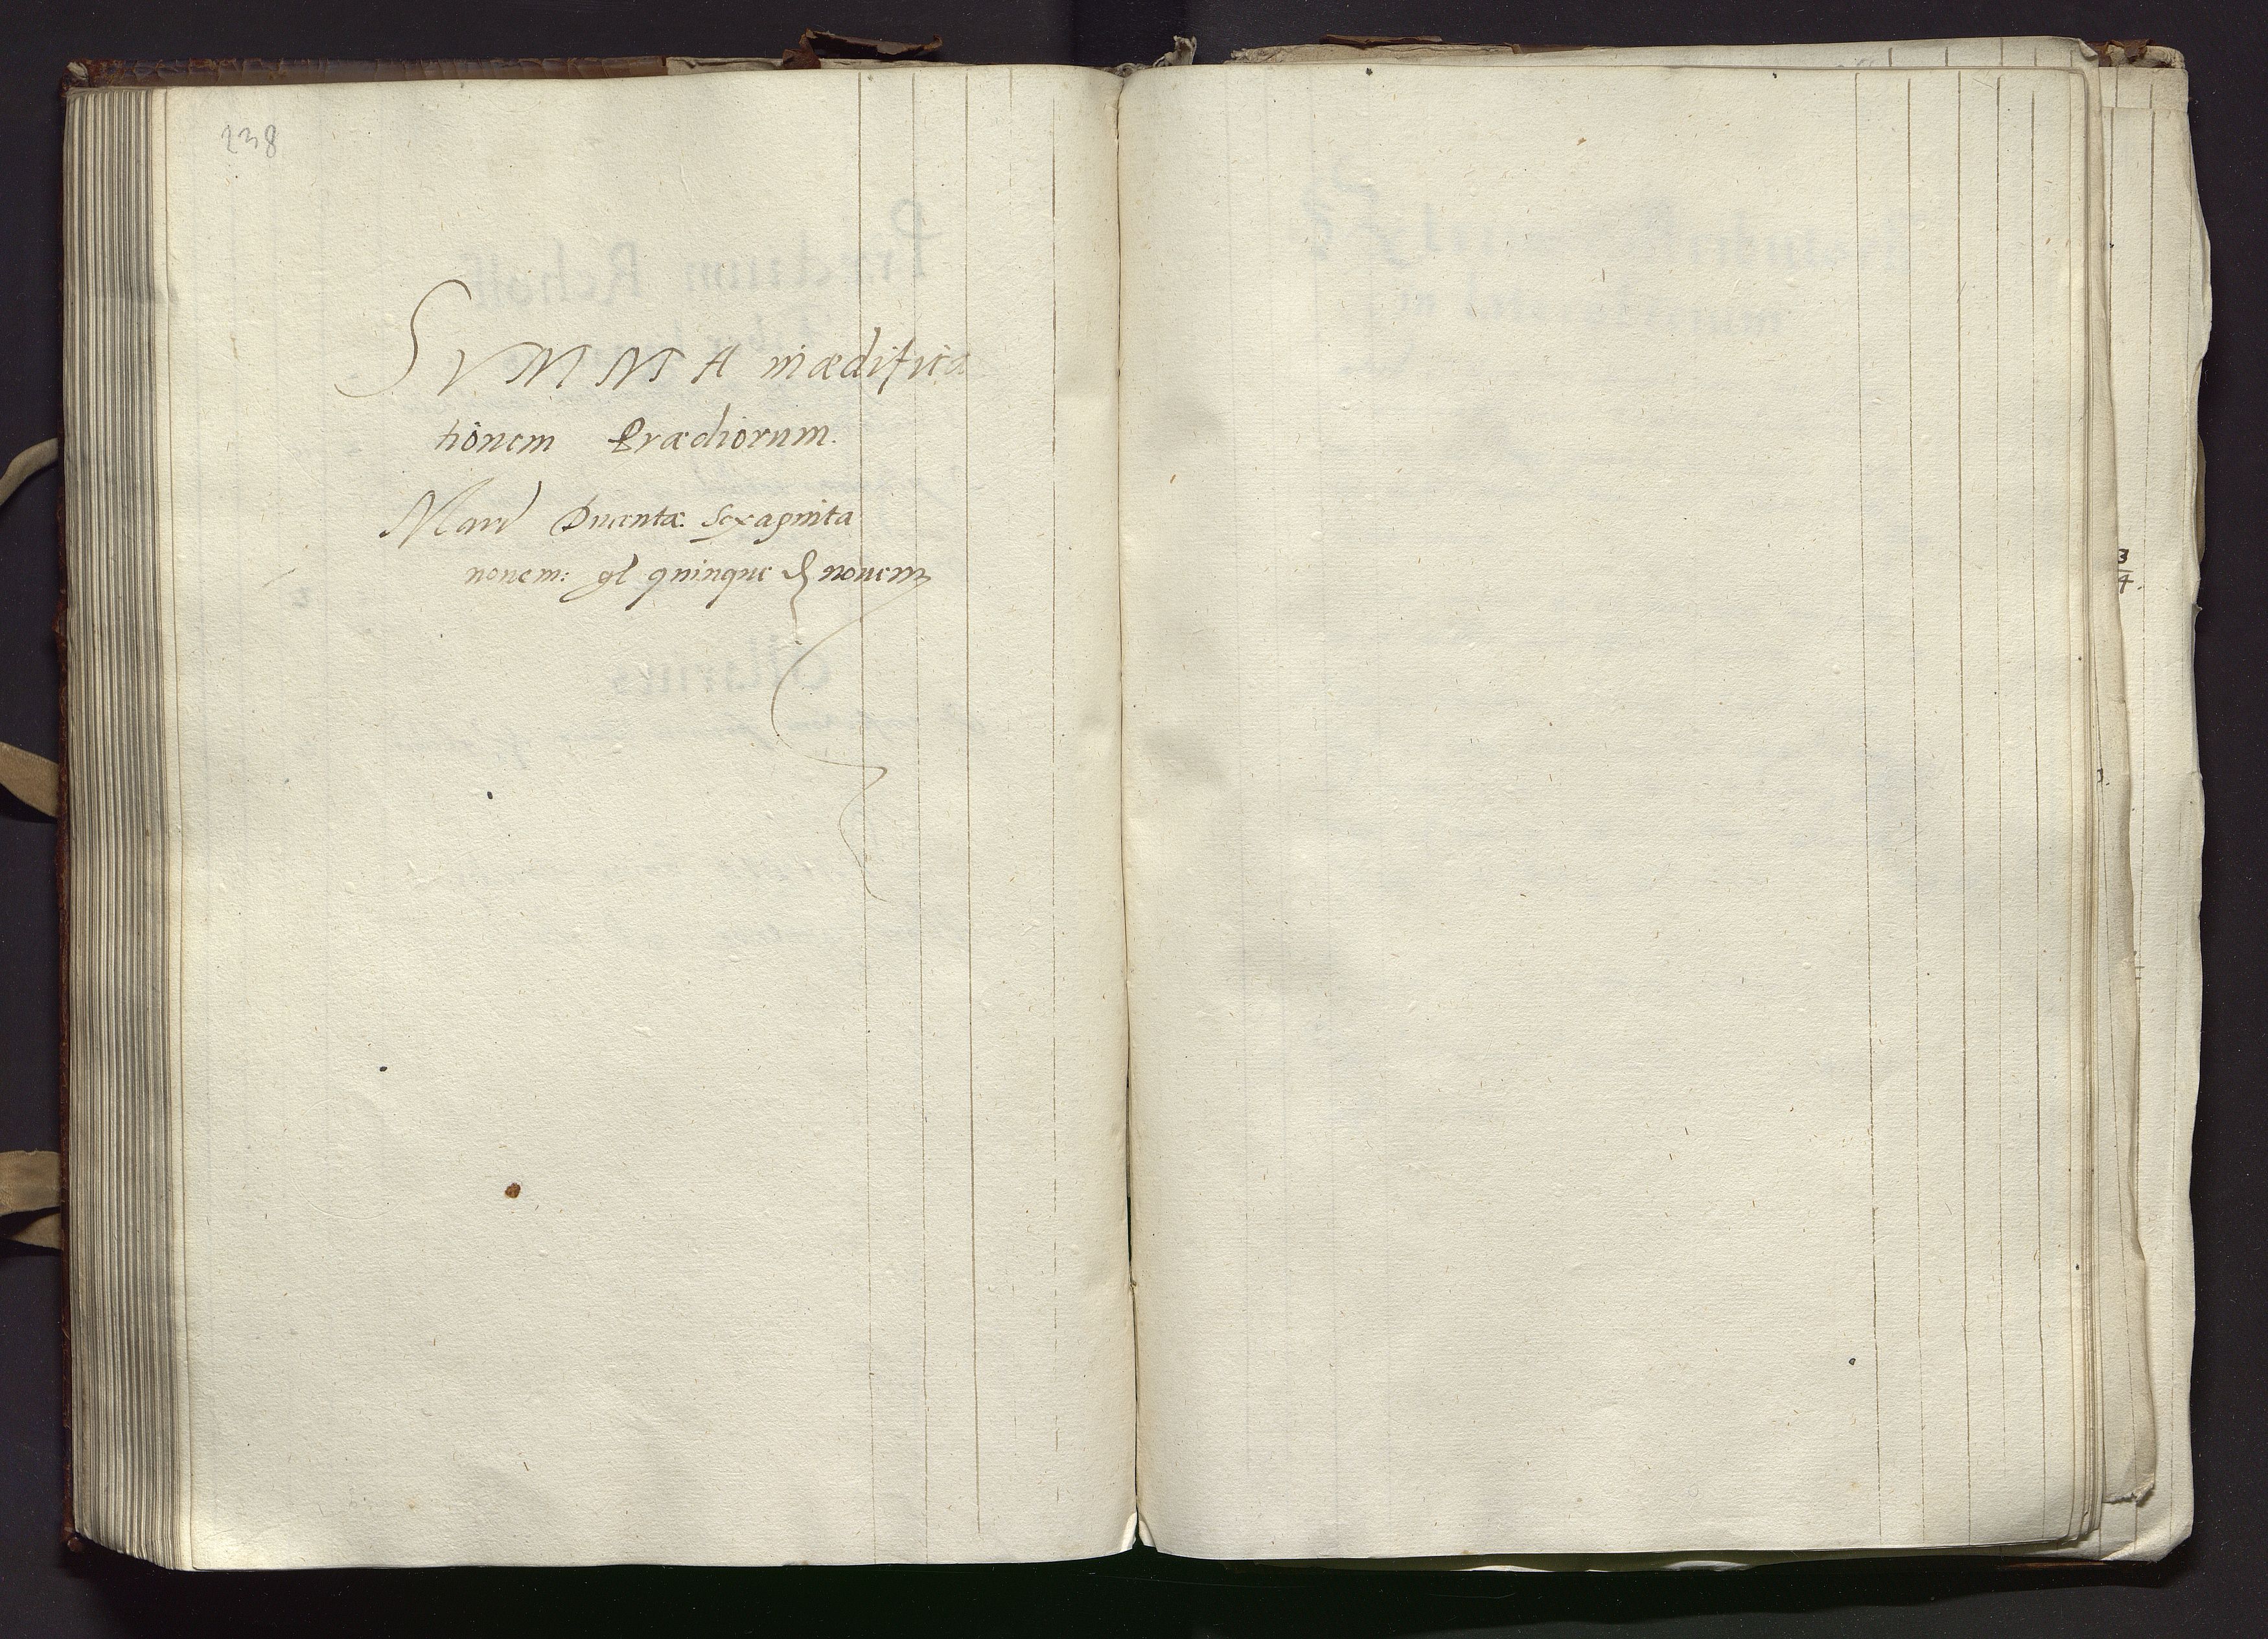 238
SVMMA inædifica
tionem Prædiorum.
Marc Ducentæ Sexaginta
nouem: gl quinque ₰ nouem
3
4.